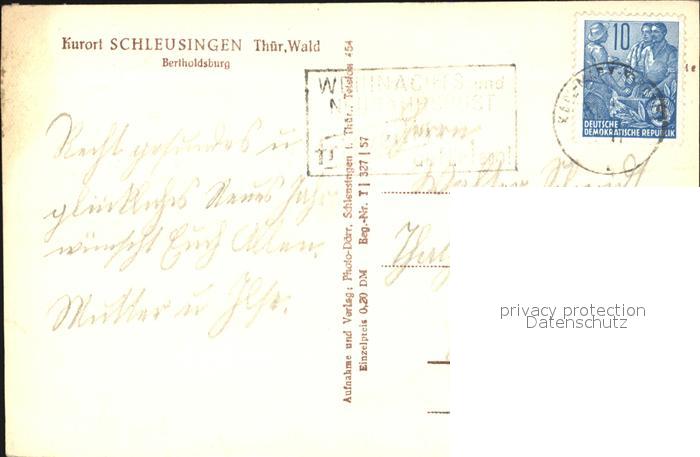 Kurort SCHLEUSINGEN Thür, Wald
Bertholdsburg
10
DEUTSCHE
DEMOKRATISCHE REPUBLIK
WEIHNACHTS und
Recht gesundes u
glückliches Neues Jahr
wünscht Euch Allen.
Mutter u Ilse.
Herrn
Aufnahme und Verlag: Photo-Dörr, Schleusingen i. Thür., Telefon 454
Einzelpreis 0,20 DM Reg.-Nr. T | 327 | 57
privacy protection
Datenschutz